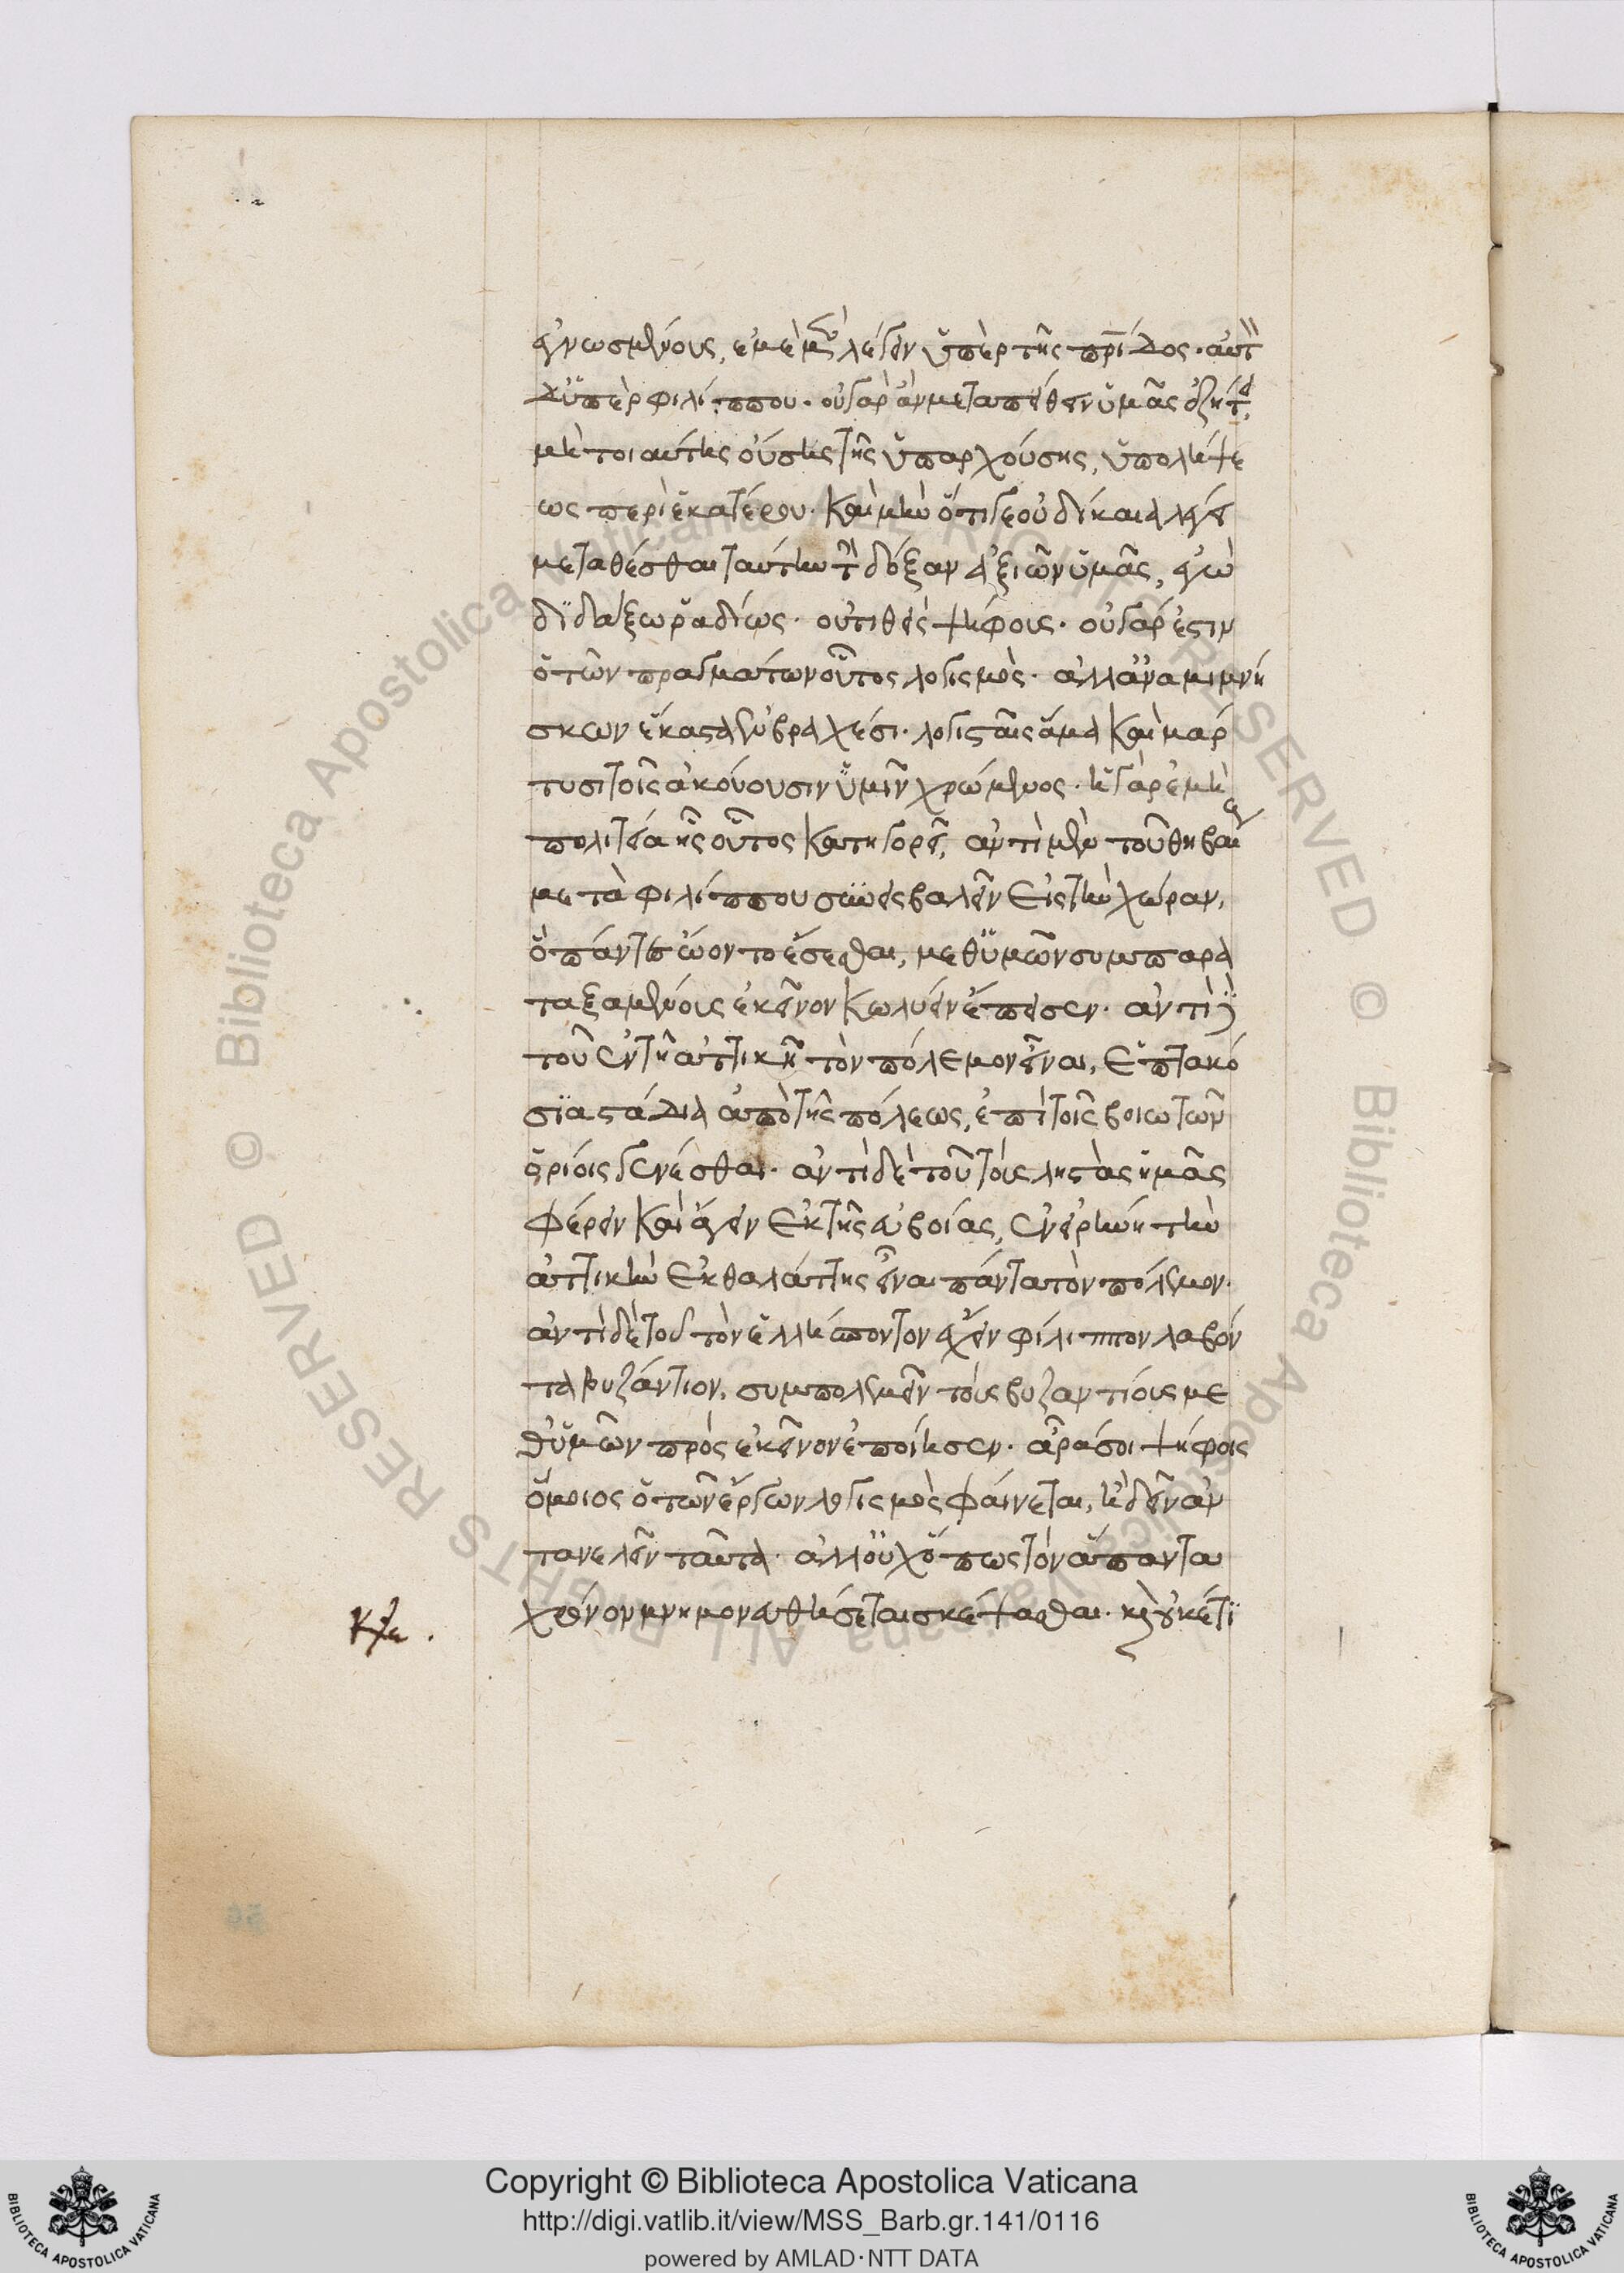 ἐγνωσμένους, ἐμὲ μὲν λέγειν ὑπὲρ τῆς πρίδος· αὐτ
δ' ὑπὲρ φιλίππου· οὐ γὰρ ἂν μεταπείθειν ὑμᾶς ἐζήτει,
μὴ τοιαύτης οὔσης τῆς ὑπαρχούσης, ὑπολήψε
ως περὶ ἑκατέρου· καὶ μὴν ὅτι γε οὐ δίκαια λέγει
μεταθέσθαι ταύτην τὴν δόξαν ἀξιῶν ὑμᾶς, ἐγὼ
διδάξω ῥαδίως· οὐ τιθεὶς ψήφους· οὐ γάρ ἐστιν
ὁ τῶν πραγμάτων οὗτος λογισμός· ἀλλ' ἀναμιμνή
σκων ἕκαστα ἐν βραχέσι· λογισταῖς ἅμα καὶ μάρ
τυσι τοῖς ἀκούουσιν ὑμῖν χρώμενος· ἡ γὰρ ἐμὴ
πολιτεία ἧς οὗτος κατηγορεῖ, ἀντὶ μὲν τοῦ θηβαί
μετὰ φιλίππου συνεισβαλεῖν εἰς τὴν χώραν,
ὃ πάντες ᾤοντο ἔσεσθαι, μεθ' ὑμῶν συμπαρα
ταξαμένους ἐκεῖνον κωλύειν ἐποίησεν· ἀντὶ δὲ
τοῦ ἐν τῇ ἀττικῇ τὸν πόλεμον εἶναι, ἑπτακό
σια στάδια ἀπὸ τῆς πόλεως, ἐπὶ τοῖς βοιωτῶν
ὁρίοις γενέσθαι· ἀντὶ δὲ τοῦ τοὺς λῃστὰς ἡμᾶς
φέρειν καὶ ἄγειν ἐκ τῆς εὐβοίας, ἐν εἰρήνῃ τὴν
ἀττικὴν ἐκ θαλάττης εἶναι πάντα τὸν πόλεμον·
ἀντὶ δὲ τοῦ τὸν ἑλλήσποντον ἔχειν φίλιππον λαβόν
τα βυζάντιον, συμπολεμεῖν τοὺς βυζαντίους με
θ' ὑμῶν πρὸς ἐκεῖνον ἐποίησεν· ἆρά σοι ψήφοις
ὅμοιος ὁ τῶν ἔργων λογισμὸς φαίνεται, ἢ δεῖν ἀν
τανελεῖν ταῦτα· ἀλλ' οὐχ ὅπως τὸν ἅπαντα
χρόνον μνημονευθήσεται σκέψασθαι· καὶ οὐκέτι